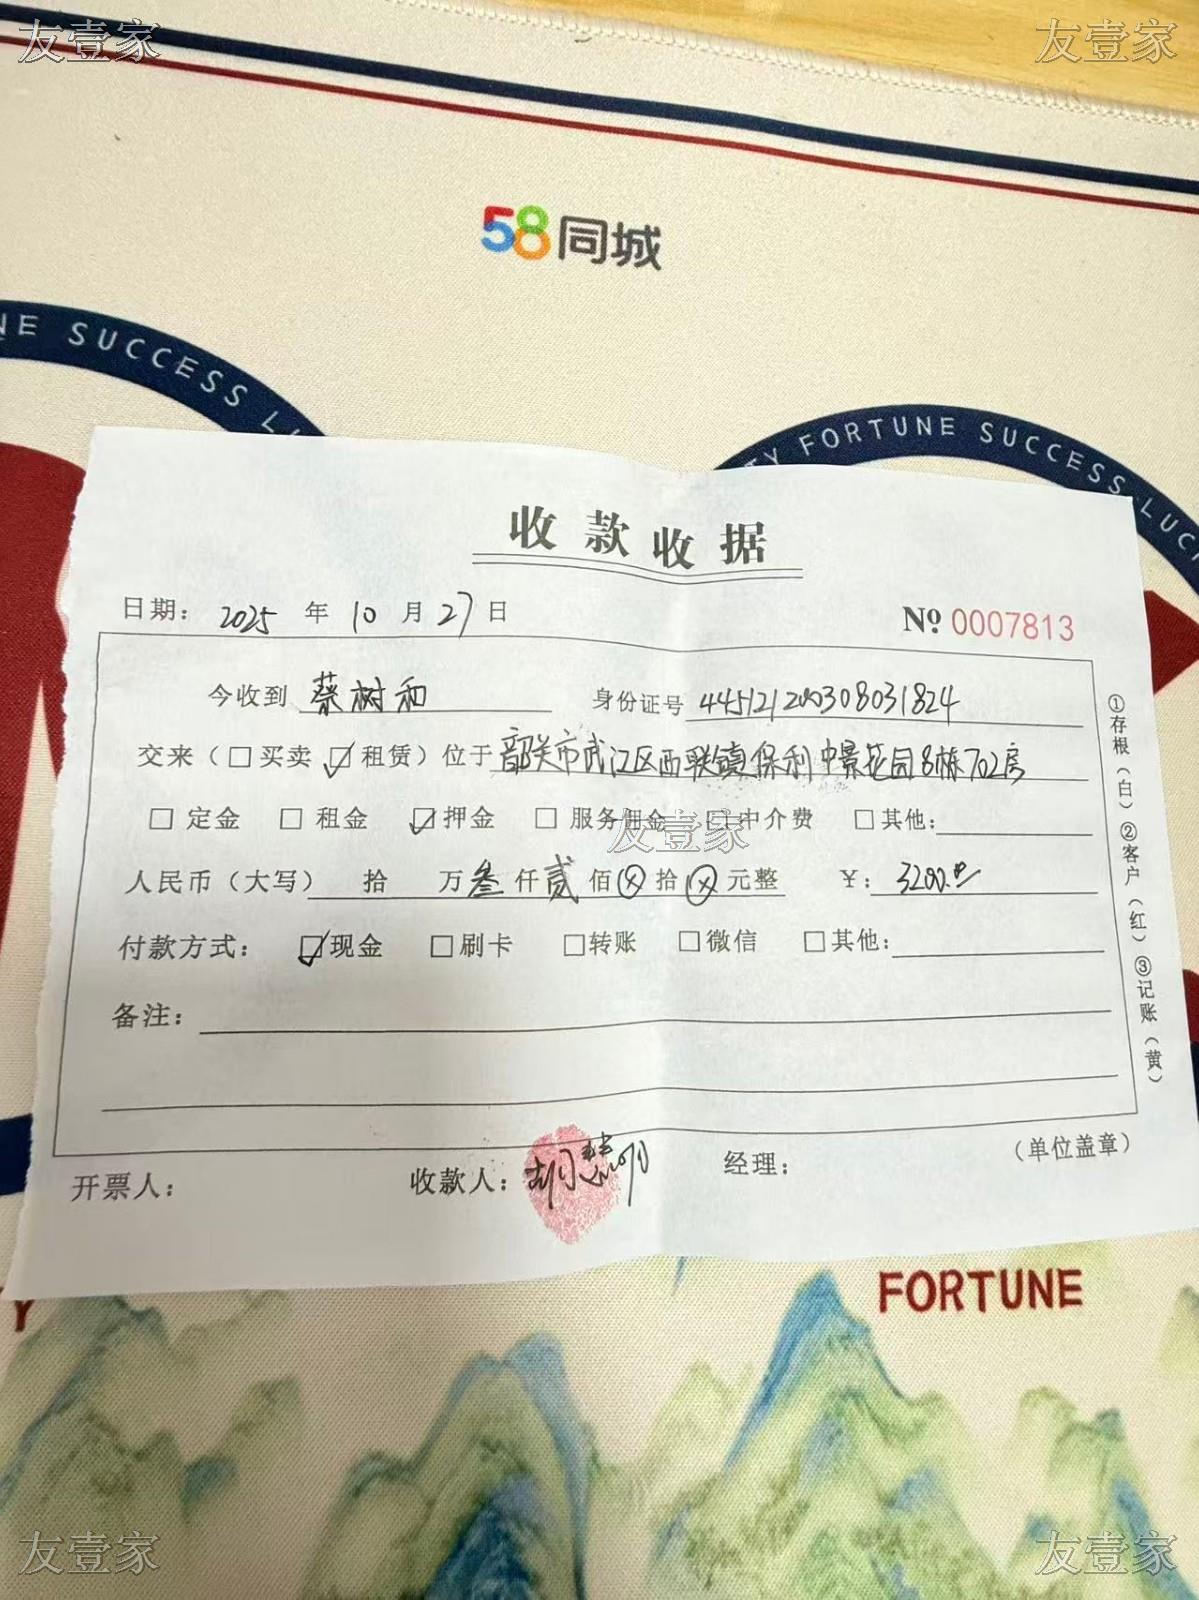 友壹家 友壹家
58同城
NE SUCCESS LU
TY FORTUNE SUCCESS LUCK
收款收据
日期： 2025 年 10 月 27 日 № 0007813
今收到 蔡树和 身份证号 445121200308031824
交来（□买卖 ☑租赁）位于 韶关市武江区西联镇保利中景花园8栋702房
□ 定金 □ 租金 ☑ 押金 □ 服务佣金 □ 中介费 □ 其他：
友壹家
人民币（大写） 拾 万 叁 仟 贰 佰 ⊗ 拾 ⊗ 元整 ￥： 3200.00
付款方式： ☑ 现金 □ 刷卡 □ 转账 □ 微信 □ 其他：
备注：
开票人： 收款人： 胡慧明 经理： （单位盖章）
①存根（白）②客户（红）③记账（黄）
Y FORTUNE
友壹家 友壹家